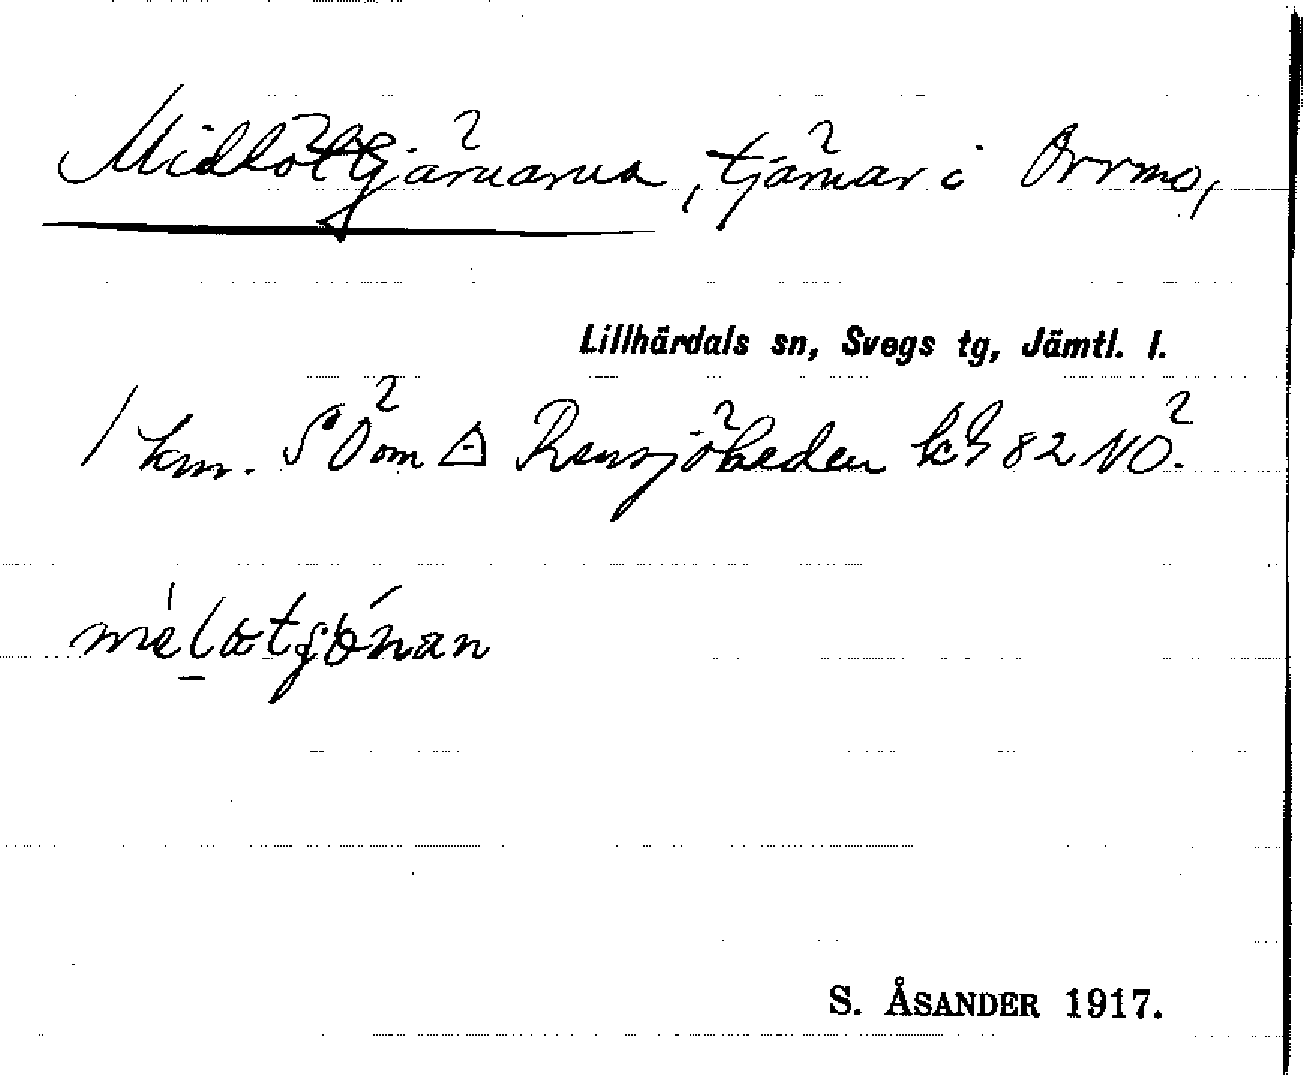 Midlöttjärnarna, tjärnar i Orrmo,
Lillhärdals sn, Svegs tg, Jämtl. l.
1 km. SO om △ Rensjöheden kbl 82 NO.
S. ÅSANDER 1917.